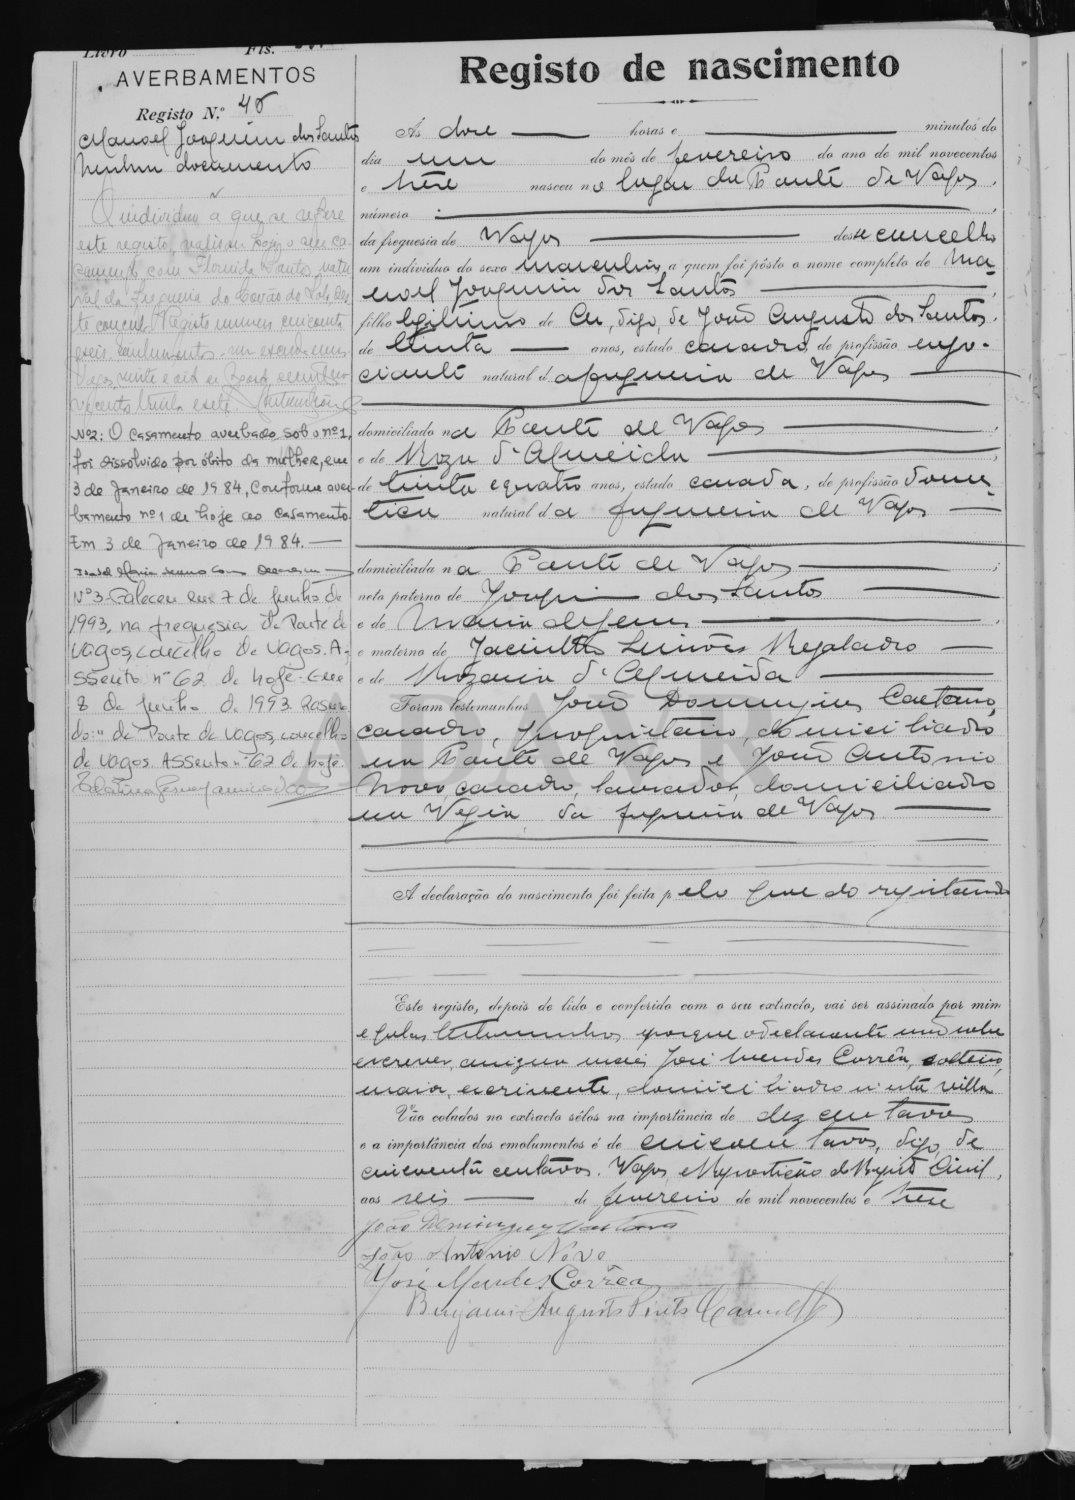 Livro Fls.
AVERBAMENTOS
Registo N.º 40
Manoel Joaquim dos Santos
Nenhum documento
O individuo a que se refere
este registo, realisou hoje o seu ca-
samento com Florinda Santos, natu-
ral da freguesia do Covão do Lobo, des-
te concelho. Registo numero cincoenta
e seis
Vagos, vinte e oito de
novecentos trinta e sete.
Nº2: O casamento averbado sob o nº1,
foi dissolvido por óbito da mulher, em
3 de Janeiro de 1984, Conforme aver-
bamento nº1 de hoje ao casamento.
Em 3 de Janeiro de 1984.
Nº3 Faleceu em 7 de Junho de
1993, na freguesia de Ponte de
Vagos, concelho de Vagos. A-
ssento nº 62 de hoje. Em
8 de Junho de 1993. Rasura-
do: "de Ponte de Vagos, concelho
de Vagos. Assento nº 62 de hoje.
Registo de nascimento
Ás doze horas e minutos do
dia um do mês de fevereiro do ano de mil novecentos
e trêse nasceu no lugar da Ponte de Vagos,
número
da freguesia de Vagos deste concelho
um individuo do sexo masculino, a quem foi pôsto o nome completo de Ma-
noel Joaquim dos Santos
filho legitimo de Au, digo, de João Augusto dos Santos,
de trinta anos, estado casado, de profissão nego-
ciante natural d a freguesia de Vagos
domiciliado na Ponte de Vagos
e de Roza d'Almeida
de trinta e quatro anos, estado casada, de profissão domes-
tica natural d a freguesia de Vagos
domiciliada na Ponte de Vagos
neto paterno de Joaquim dos Santos
e de Maria de Jesus
e materno de Jacintho Simões Regalado
e de Rozaria d'Almeida
Foram testemunhas João Domingues Caetano,
casado, proprietario, domiciliado
na Ponte de Vagos e João Antonio
Novo, casado, lavrador, domiciliado
na Vigia, da freguesia de Vagos
A declaração do nascimento foi feita pelo pae do registando
Este registo, depois de lido e conferido com o seu extracto, vai ser assinado por mim
e pelas testemunhas porque o declarante não sabe
escrever, assigna mais José Mendes Corrêa, solteiro,
maior, escrivente, domiciliado n'esta villa
Vão colados no extracto sêlos na importância de dez centavos
e a importância dos emolumentos é de cincoen tavos, digo, de
cincoenta centavos. Vagos, e Repartição do Registo Civil,
aos seis de fevereiro de mil novecentos e trêse
João Domingues Caetano
João Antonio Novo
José Mendes Corrêa
Benjamin Augusto
ADAVR